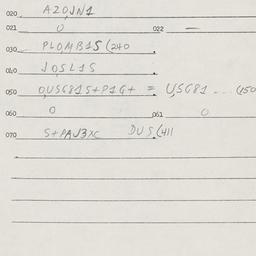 020 AZOJN1
021 0 022 —
030 PLOMB1S(240
040 JOSL1S
050 0,USG81S+P1G+ = U,SG81 ... (150
060 0 061 0
070 S+PAU3XC DUS(411